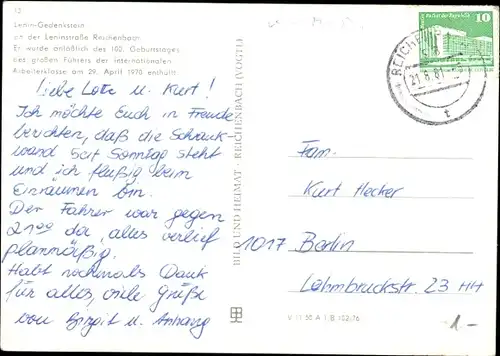 12
Lenin-Gedenkstein
an der Leninstraße Reichenbach.
Er wurde anläßlich des 100. Geburtstages
des großen Führers der internationalen
Arbeiterklasse am 29. April 1970 enthüllt.
Liebe Lotte u. Kurt!
Ich möchte Euch in Freude
berichten, daß die Schrank-
wand seit Sonntag steht
und ich fleißig beim
Einräumen bin.
Der Fahrer war gegen
21⁰⁰ da, alles verlief
planmäßig.
Habt nochmals Dank
für alles, viele Grüße
von Birgit u. Anhang
BILD UND HEIMAT · REICHENBACH (VOGTL)
10
REICHENB
21.8.81
t
Fam.
Kurt Hecker
1017 Berlin
Lehmbruckstr. 23 HH
V 11 50 A 1 B 102/76
1.-